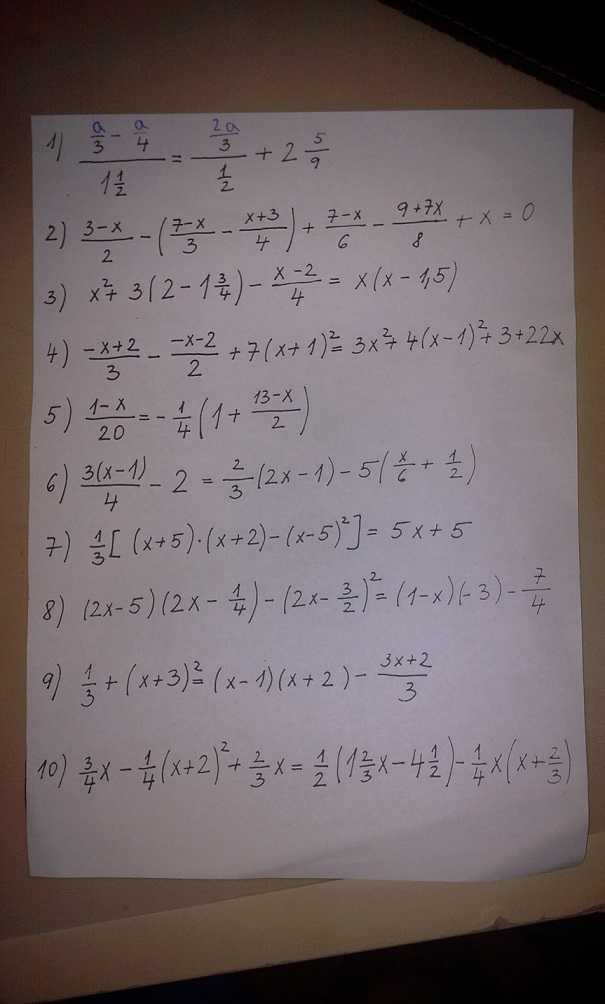 1) (a/3 - a/4)/(1 1/2) = (2a/3)/(1/2) + 2 5/9
2) (3-x)/2 - ((7-x)/3 - (x+3)/4) + (7-x)/6 - (9+7x)/8 + x = 0
3) x² + 3(2 - 1 3/4) - (x-2)/4 = x(x - 1,5)
4) (-x+2)/3 - (-x-2)/2 + 7(x+1)² = 3x² + 4(x-1)² + 3 + 22x
5) (1-x)/20 = -1/4 (1 + (13-x)/2)
6) 3(x-1)/4 - 2 = 2/3 (2x-1) - 5(x/6 + 1/2)
7) 1/3 [(x+5)·(x+2) - (x-5)²] = 5x + 5
8) (2x-5)(2x - 1/4) - (2x - 3/2)² = (1-x)(-3) - 7/4
9) 1/3 + (x+3)² = (x-1)(x+2) - (3x+2)/3
10) 3/4 x - 1/4 (x+2)² + 2/3 x = 1/2 (1 2/3 x - 4 1/2) - 1/4 x (x + 2/3)